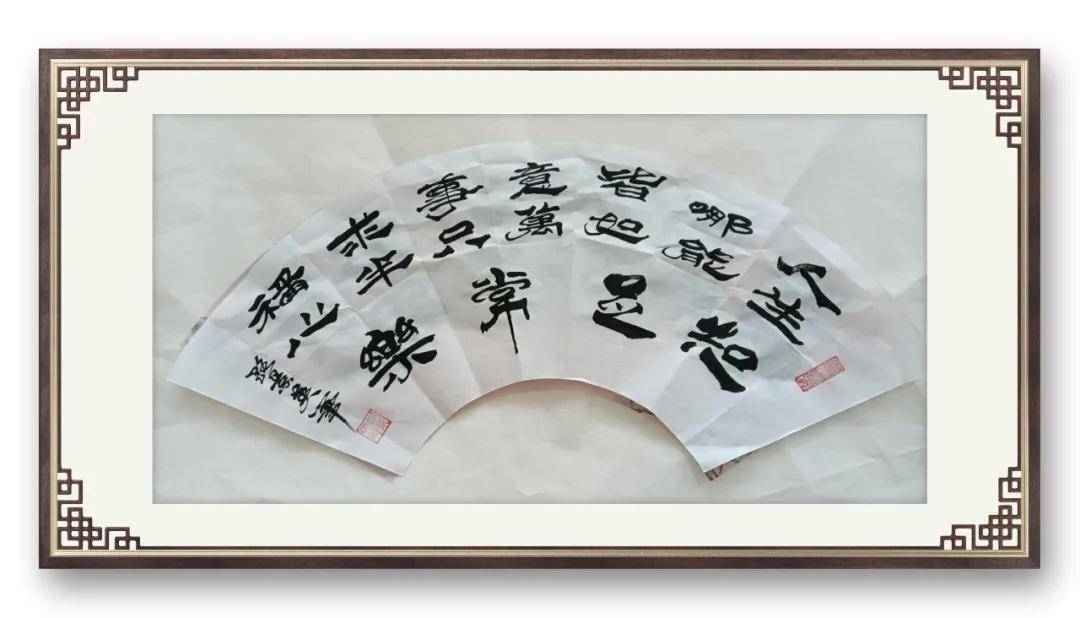 人生
哪能
皆如
意萬
事只
求半
稱心
知足常樂